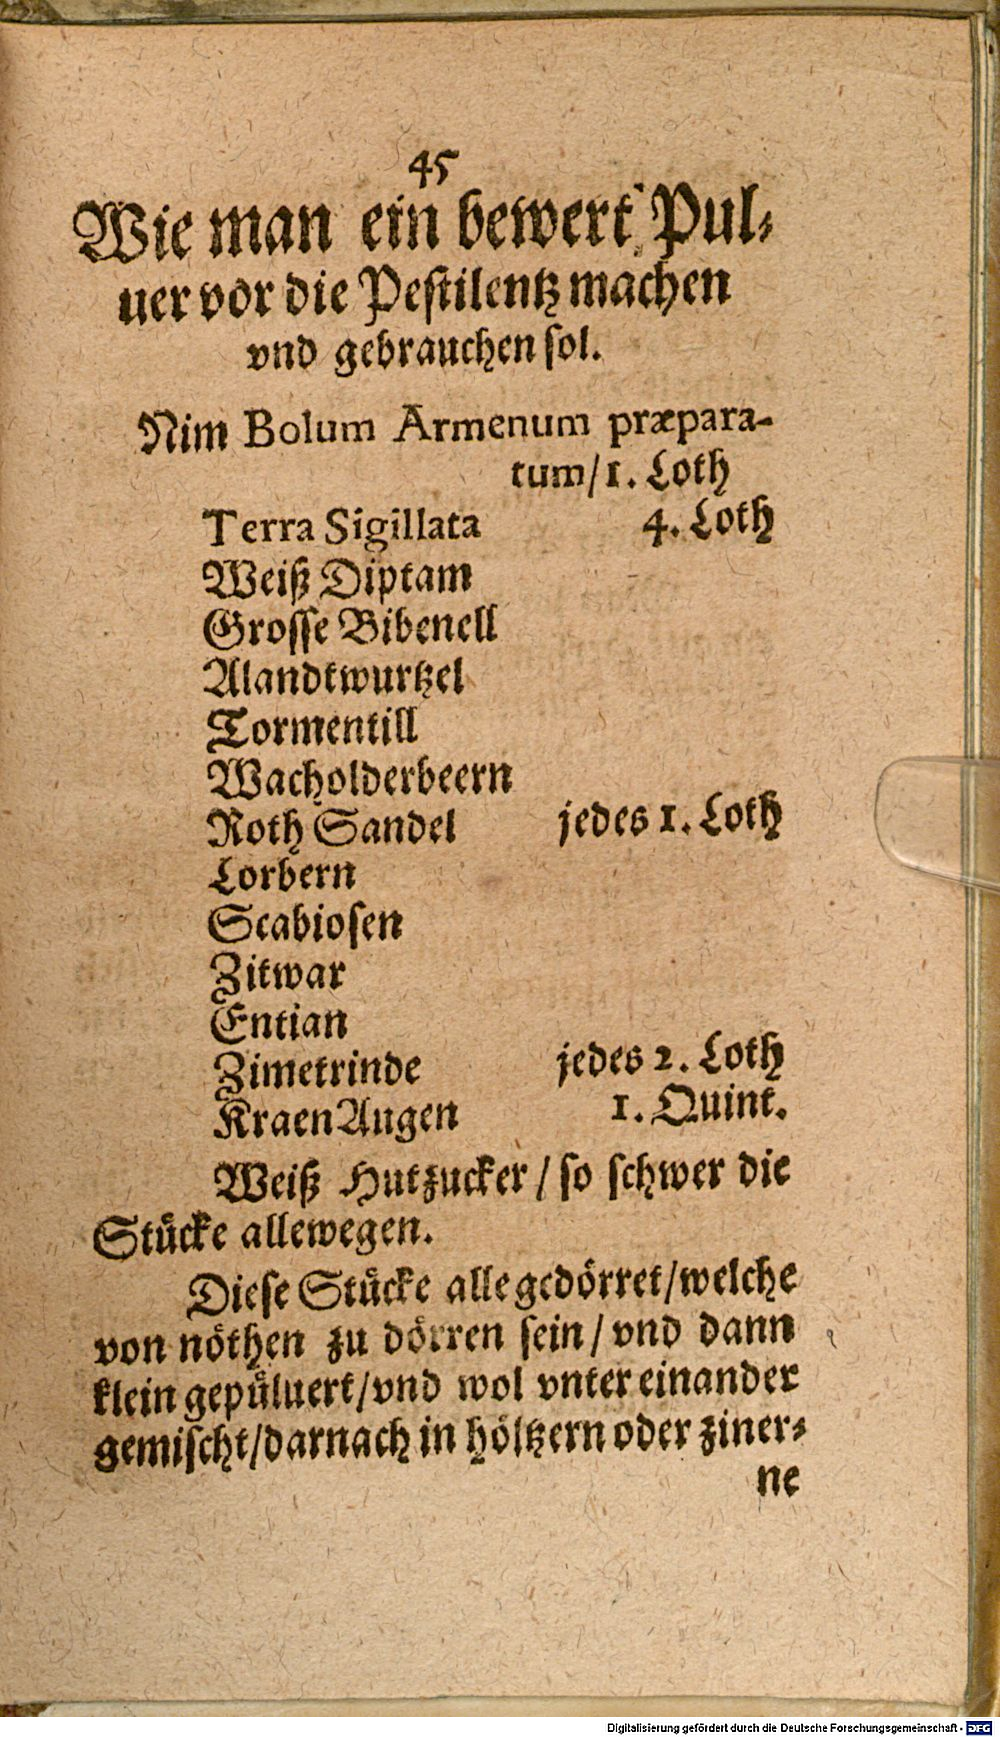 45
Wie man ein bewert Pul⸗
uer vor die Pestilentz machen
vnd gebrauchen sol.
Nim Bolum Armenum præpara-
tum/1. Loth
Terra Sigillata 4. Loth
Weiß Diptam
Grosse Bibenell
Alandtwurtzel
Tormentill
Wacholderbeern
Roth Sandel jedes 1. Loth
Lorbern
Scabiosen
Zitwar
Entian
Zimetrinde jedes 2. Loth
Kraen Augen 1. Quint.
Weiß Hutzucker / so schwer die
Stücke allewegen.
Diese Stücke alle gedörret/welche
von nöthen zu dörren sein / vnd dann
klein gepüluert/vnd wol vnter einander
gemischt/darnach in höltzern oder ziner⸗
ne
Digitalisierung gefördert durch die Deutsche Forschungsgemeinschaft - DFG